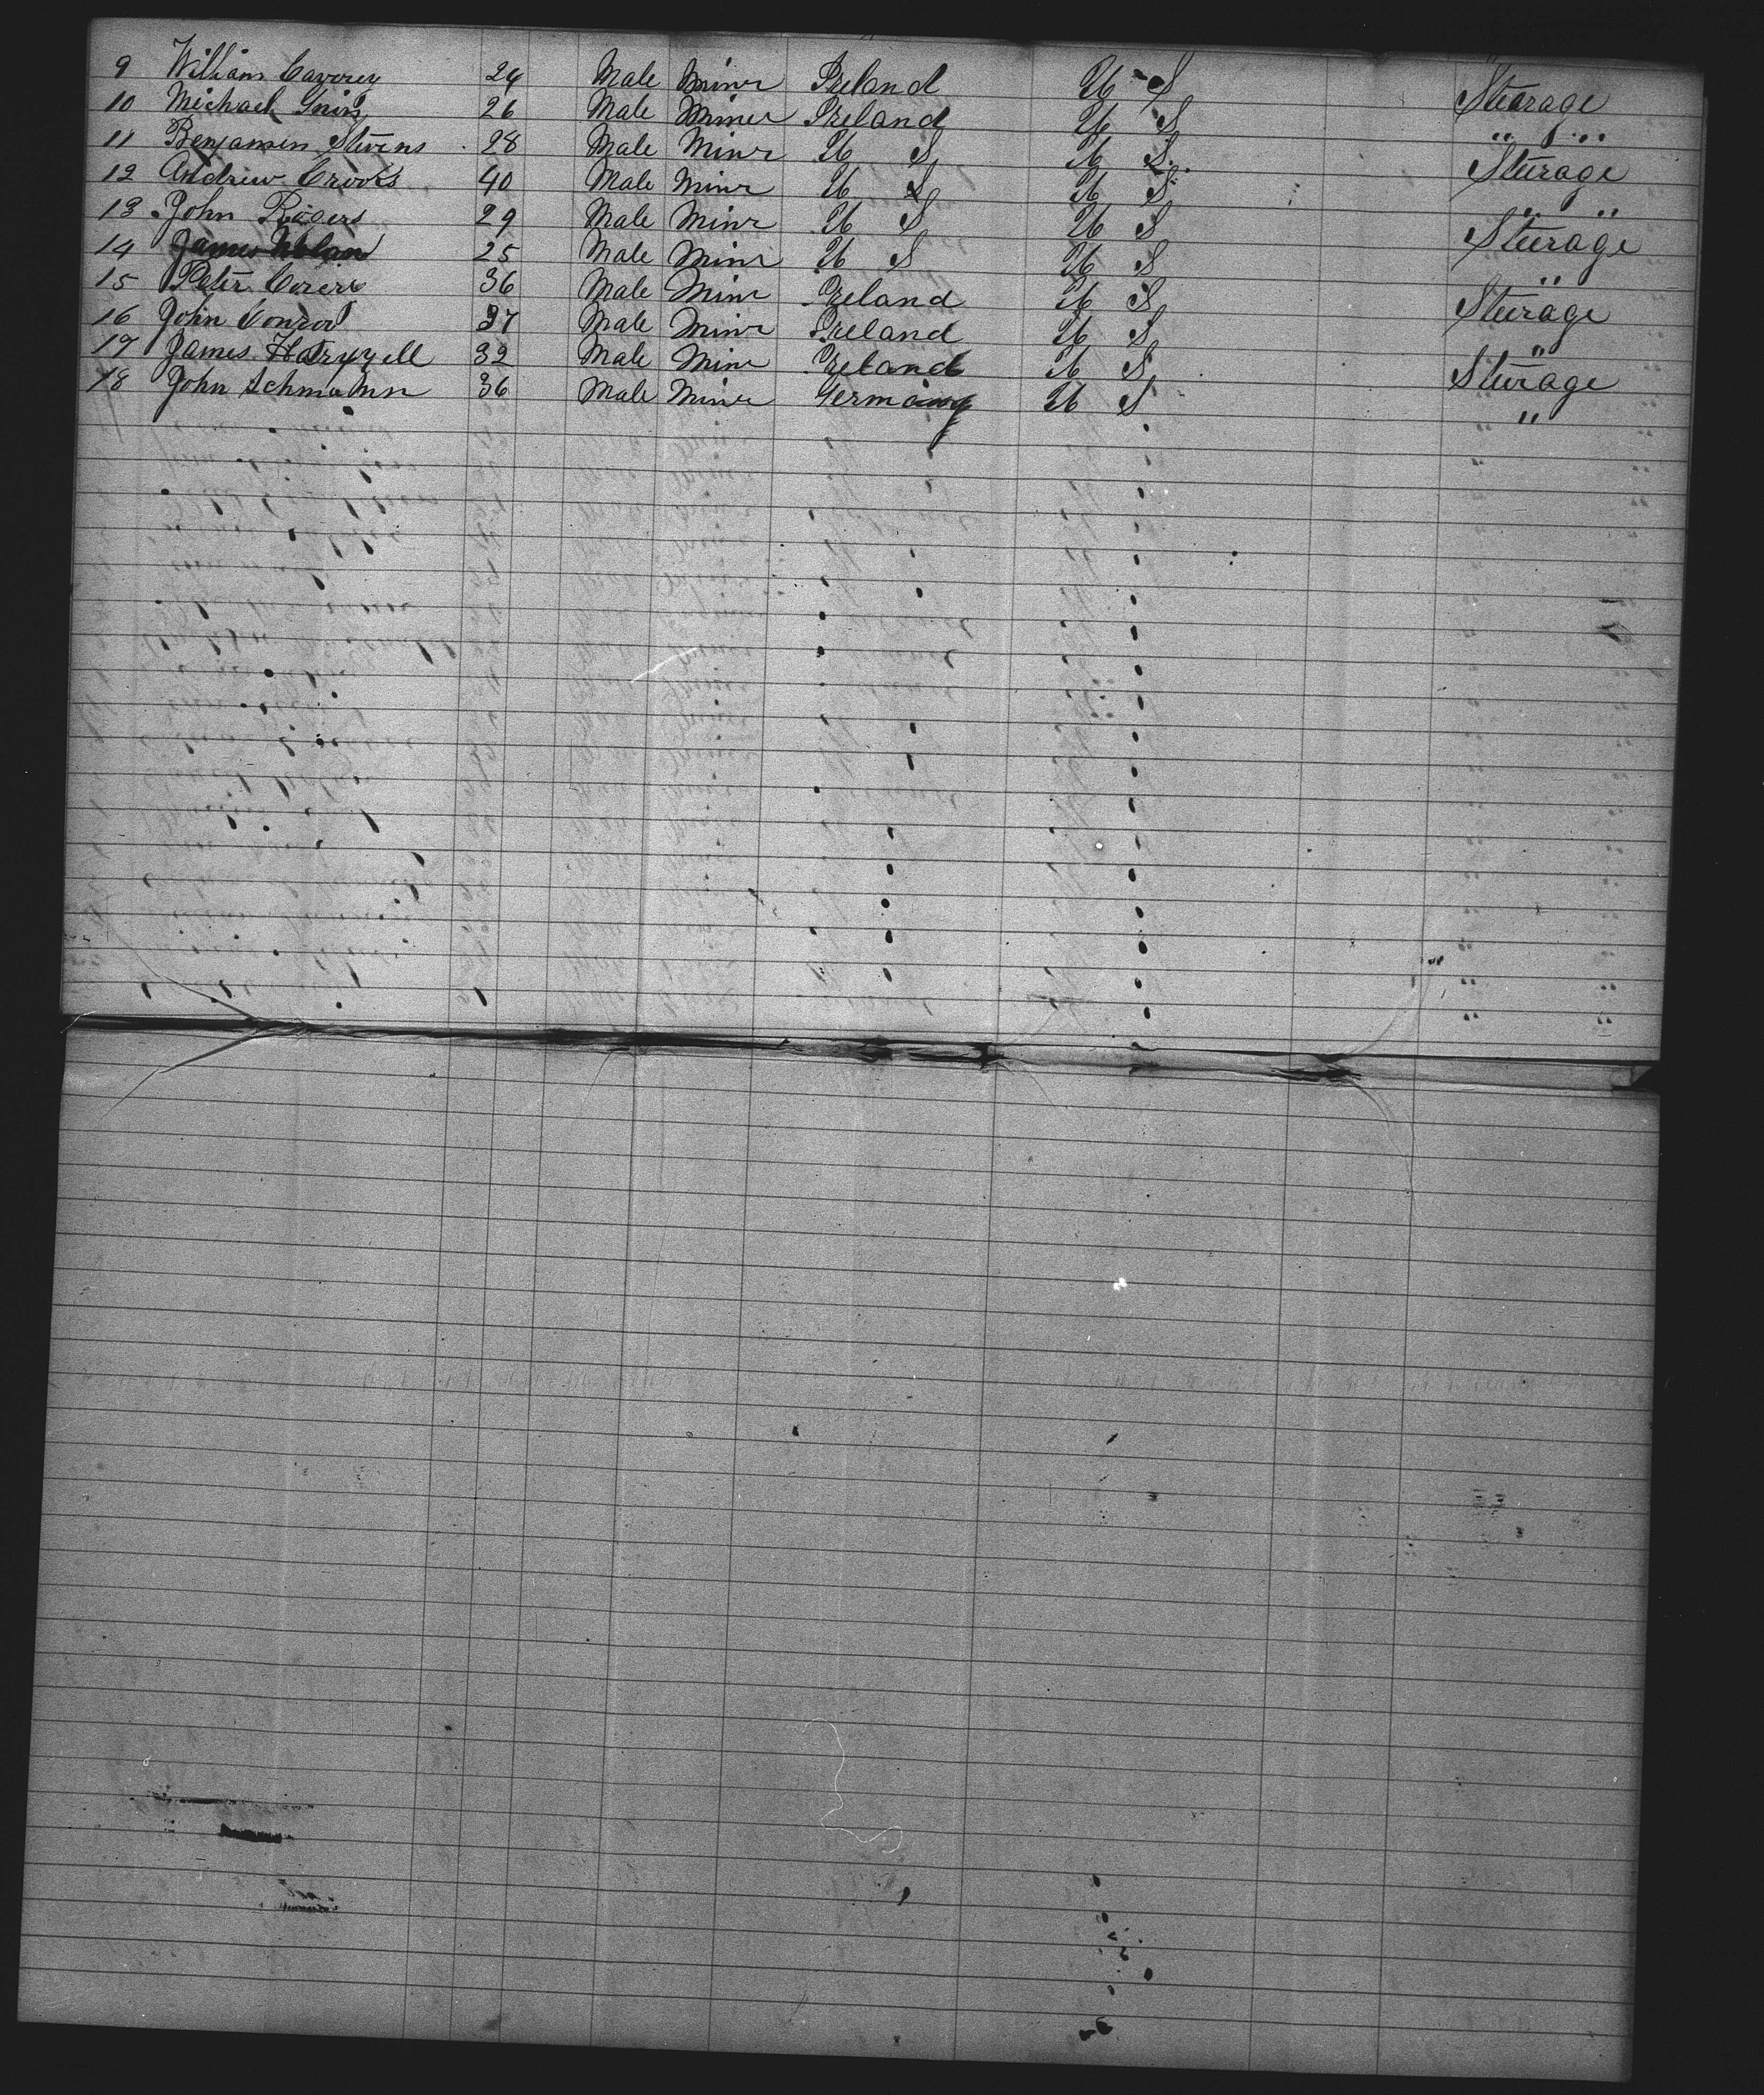 9 William Cavorey 24 Male Miner Ireland U S Stearage
10 Michael 26 Male Miner Ireland U S " "
11 Benjamen Stevens 28 Male Minr U S U S Sturage
12 Andrew Crooks 40 Male Minr U S U S " "
13 John Rogers 29 Male Minr U S U S Sturage
14 James 25 Male Minr U S U S "
15 Peter 36 Male Minr Ireland U S Sturage
16 John Conrod 37 Male Minr Ireland U S "
17 James 32 Male Minr Ireland U S Sturage
18 John Schmahmn 36 Male Miner Germany U S "